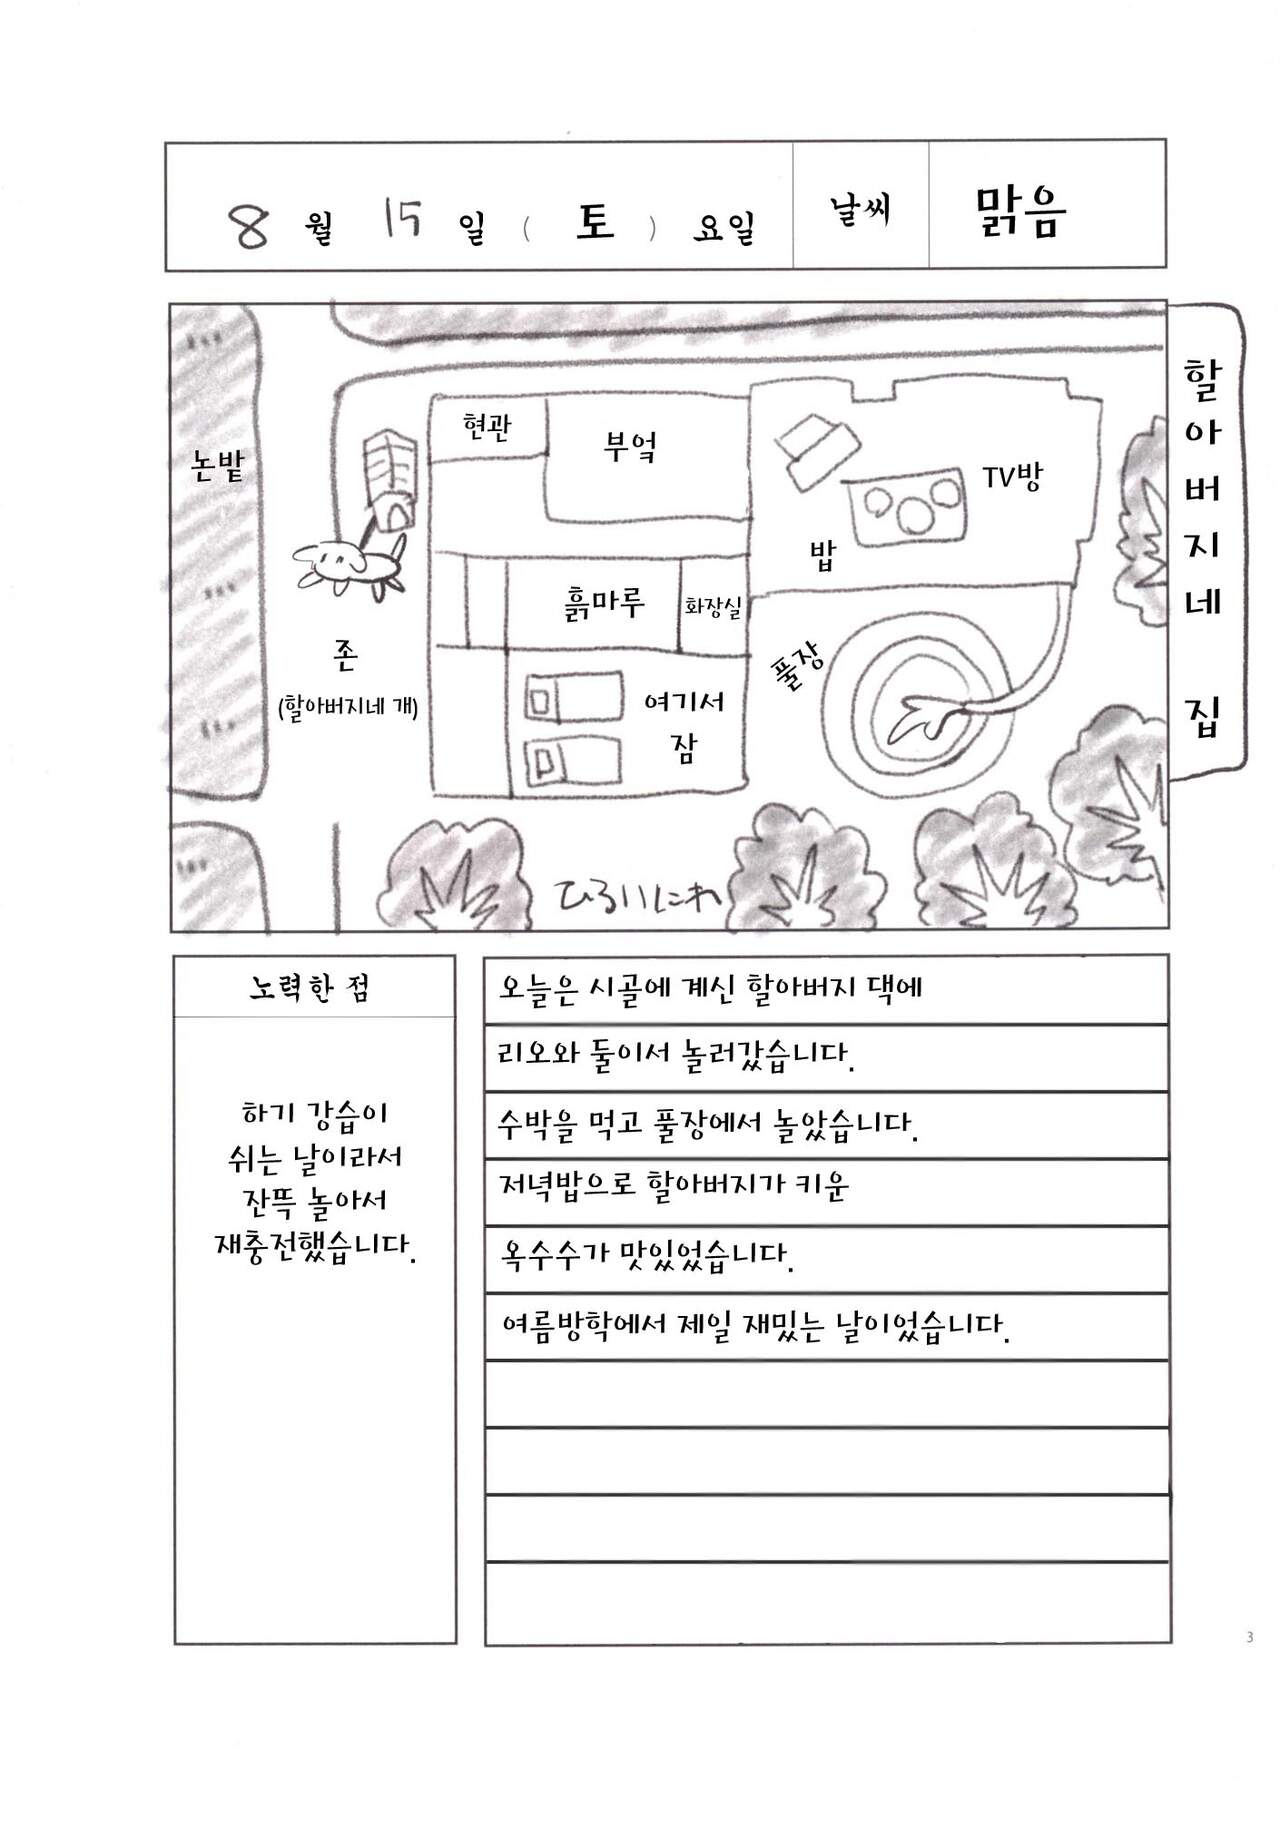 8 월 15 일 ( 토 ) 요일 날씨 맑음
할아버지네 집
현관
부엌
TV방
논밭
밥
흙마루
화장실
존
(할아버지네 개)
풀장
여기서
잠
ひろいにわ
노력한 점
하기 강습이
쉬는 날이라서
잔뜩 놀아서
재충전했습니다.
오늘은 시골에 계신 할아버지 댁에
리오와 둘이서 놀러갔습니다.
수박을 먹고 풀장에서 놀았습니다.
저녁밥으로 할아버지가 키운
옥수수가 맛있었습니다.
여름방학에서 제일 재밌는 날이었습니다.
3